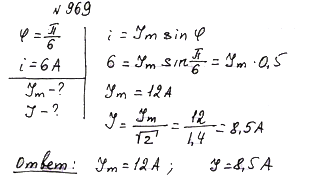 №969
φ = π/6
i = 6A
I_m - ?
I - ?
i = I_m sin φ
6 = I_m sin π/6 = I_m · 0,5
I_m = 12A
I = I_m/√2 = 12/1,4 = 8,5A
Ответ: I_m = 12A ; I = 8,5A